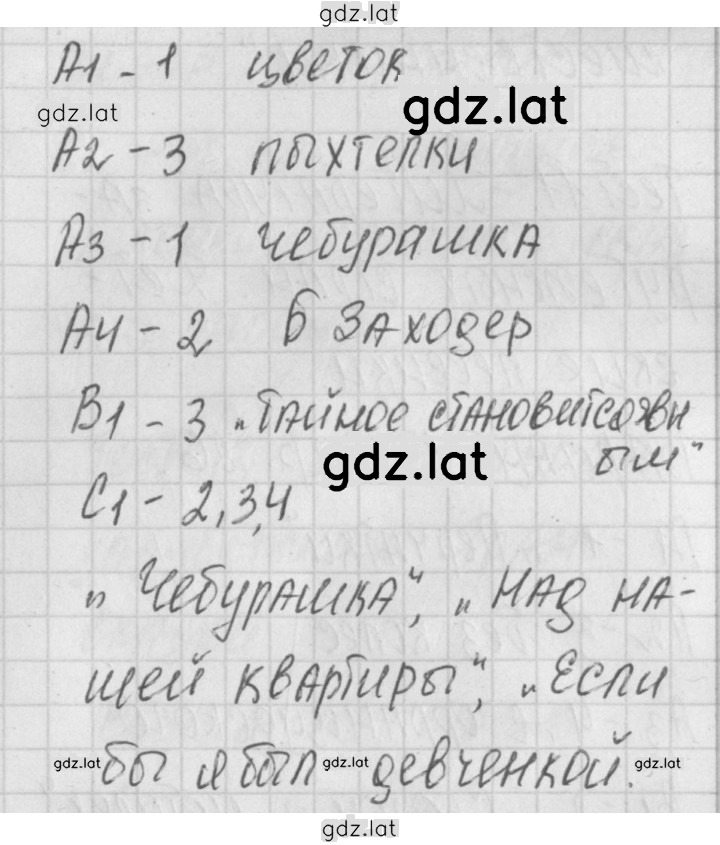 gdz.lat
А1 - 1 цветок
gdz.lat
gdz.lat
А2 - 3 пыхтелки
А3 - 1 чебурашка
А4 - 2 Б Заходер
В1 - 3 „Тайное становится явн
ым"
gdz.lat
С1 - 2,3,4
„Чебурашка", „Над на-
шей квартиры", „Если
gdz.lat бы я был gdz.lat девченкой. gdz.lat
gdz.lat